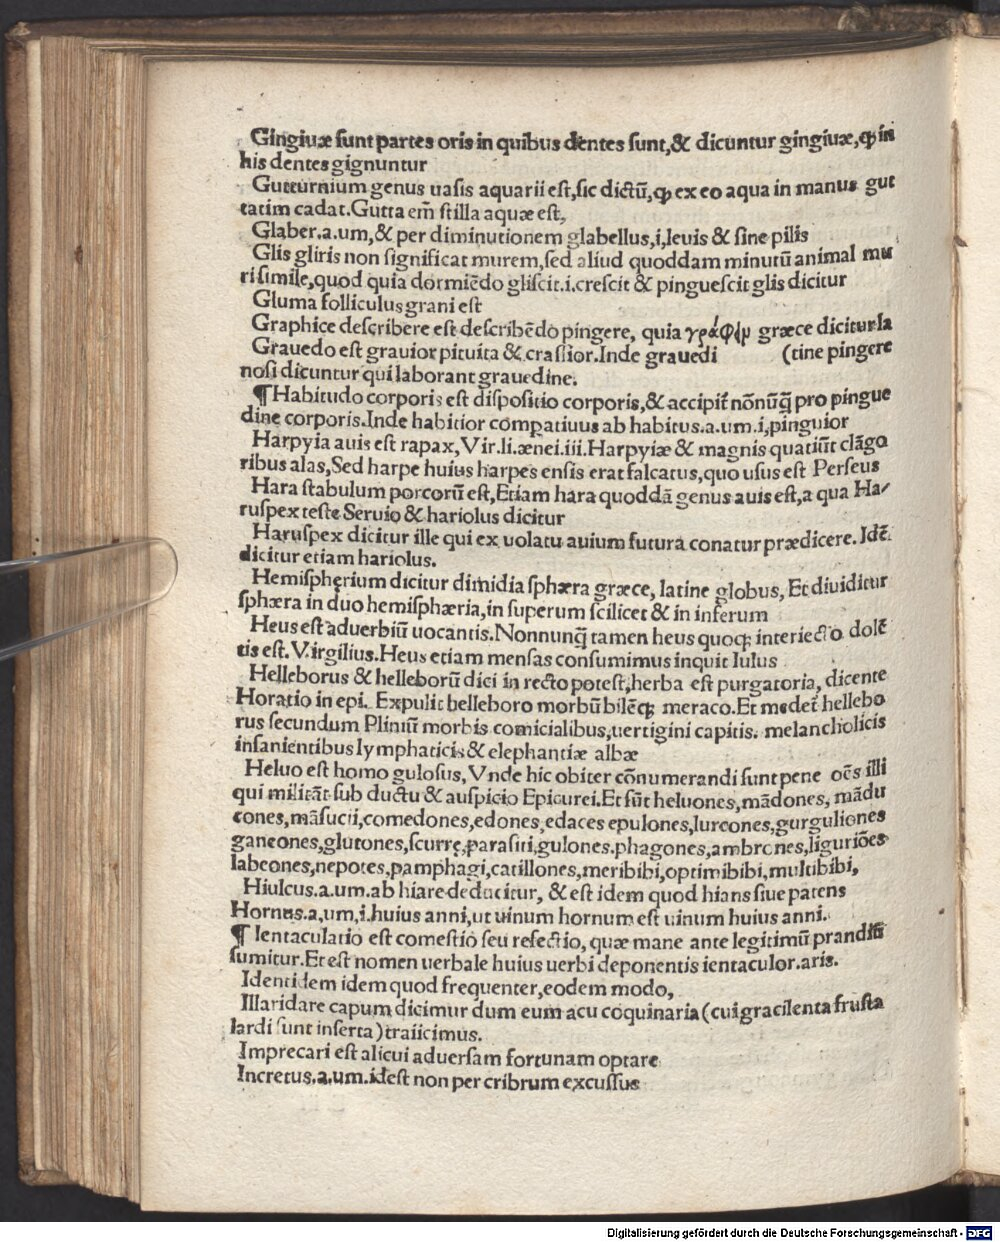 Gingiuæ sunt partes oris in quibus dentes sunt,& dicuntur gingiuæ,ꝙ in
his dentes gignuntur
Gutturnium genus uasis aquarii est,sic dictū,ꝙ ex eo aqua in manus gut
tatim cadat.Gutta em̄ stilla aquæ est,
Glaber.a.um,& per diminutionem glabellus,i,leuis & sine pilis
Glis gliris non significat murem,sed aliud quoddam minutū animal mu
ri simile,quod quia dormiēdo gliscit.i.crescit & pinguescit glis dicitur
Gluma folliculus grani est
Graphice describere est describēdo pingere, quia γράφειν græce dicitur la
Grauedo est grauior pituita & crassior.Inde grauedi (tine pingere
nosi dicuntur qui laborant grauedine.
¶Habitudo corporis est dispositio corporis,& accipit̄ nōnūq̄ pro pingue
dine corporis.Inde habitior compatiuus ab habitus.a.um.i,pinguior
Harpyia auis est rapax,Vir.li.ænei.iii.Harpyiæ & magnis quatiūt clāgo
ribus alas,Sed harpe huius harpes ensis erat falcatus,quo usus est Perseus
Hara stabulum porcorū est,Etiam hara quoddā genus auis est,a qua Ha/
ruspex teste Seruio & hariolus dicitur
Haruspex dicitur ille qui ex uolatu auium futura conatur prædicere. Idē
dicitur etiam hariolus.
Hemisphęrium dicitur dimidia sphæra græce, latine globus, Et diuiditur
sphæra in duo hemisphæria,in superum scilicet & in inferum
Heus est aduerbiū uocantis.Nonnunq̄ tamen heus quoqꝫ interiectio dolē
tis est.Virgilius.Heus etiam mensas consumimus inquit Iulus
Helleborus & helleborū dici in recto potest,herba est purgatoria, dicente
Horatio in epi. Expulit helleboro morbū bilēqꝫ meraco.Et medet̄ hellebo
rus secundum Pliniū morbis comicialibus,uertigini capitis. melancholicis
insanientibus lymphaticis & elephantiæ albæ
Heluo est homo gulosus,Vnde hic obiter cōnumerandi sunt pene oēs illi
qui militāt sub ductu & auspicio Epicurei.Et sūt heluones, mādones, mādu
cones,māsucii,comedones,edones,edaces epulones,lurcones,gurguliones
ganeones,glutones,scurrę,parasiti,gulones.phagones,ambrones,liguriōes
labeones,nepotes,pamphagi,catillones,meribibi,optimibibi,multibibi,
Hiulcus.a.um.ab hiare deducitur, & est idem quod hians siue patens
Hornus.a,um,i.huius anni,ut uinum hornum est uinum huius anni.
¶ Ientaculatio est comestio seu refectio, quæ mane ante legitimū prandiū
sumitur.Et est nomen uerbale huius uerbi deponentis ientaculor.aris.
Identidem idem quod frequenter,eodem modo,
Illaridare capum dicimur dum eum acu coquinaria (cui gracilenta frusta
lardi sunt inserta) traiicimus.
Imprecari est alicui aduersam fortunam optare
Incretus.a.um.idest non per cribrum excussus
Digitalisierung gefördert durch die Deutsche Forschungsgemeinschaft - DFG